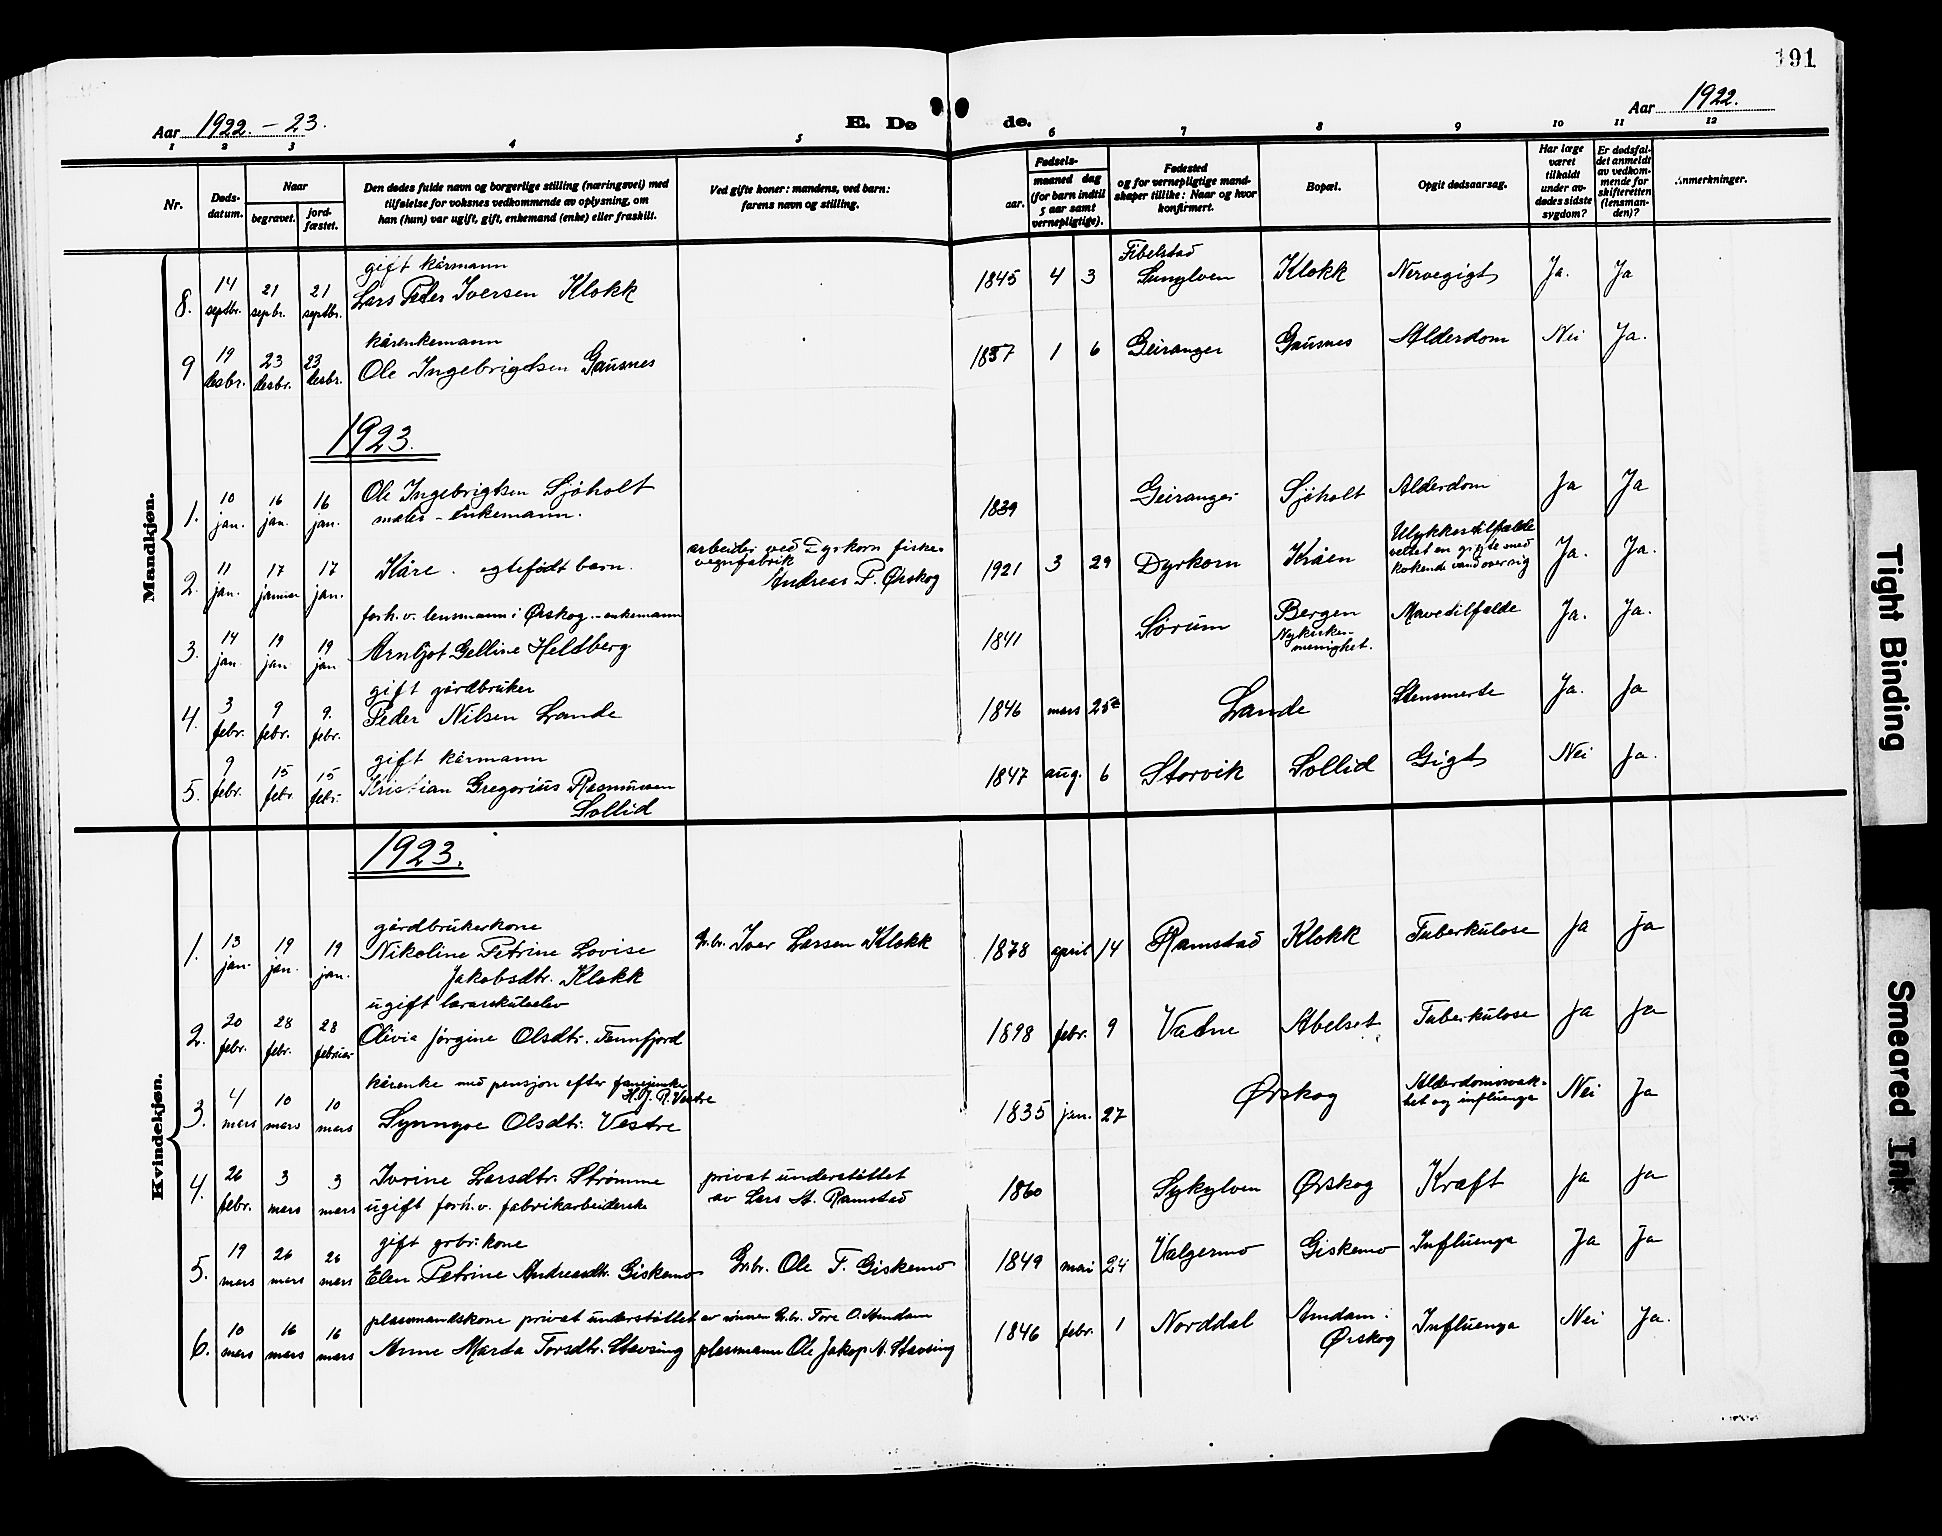 191
Aar 1922. - 23.
E. Dø de.
Aar 1922.
1 2 3 4 5 6 7 8 9 10 11 12
Nr.
Døds-
datum.
Naar
begravet.
jord-
fæstet.
Den dødes fulde navn og borgerlige stilling (næringsvei) med
tilføielse for voksnes vedkommende av oplysning, om
han (hun) var ugift, gift, enkemand (enke) eller fraskilt.
Ved gifte koner: mandens, ved barn:
farens navn og stilling.
Fødsels-
aar.
maaned dag
(for barn indtil
5 aar samt
vernepligtige).
Fødested
og for vernepligtige mand-
skaper tillike: Naar og hvor
konfirmert.
Bopæl.
Opgit dødsaarsag.
Har læge
været
tilkaldt
under av-
dødes sidste
sygdom?
Er dødsfal-
det anmeldt
av vedkom-
mende for
skifteretten
(lensman-
den)?
Anmerkninger.
Mandkjøn.
gift kårmann
8. 14 septbr. 21 sepbr. 21 septbr. Lars Peter Iversen Klokk 1845 4 3 Fibelstad Sunylven Klokk Nervegigt Ja. Ja
kårenkemann
9 19 desbr. 23 desbr. 23 desbr. Ole Ingebrigtsen Gausnes 1837 1 6 Geiranger Gausnes Alderdom Nei Ja.
1923.
1. 10 jan. 16 jan. 16 jan. Ole Ingebrigtsen Sjøholt 1839 Geiranger Sjøholt Alderdom Ja Ja
maler - enkemann.
2. 11 jan. 17 januar 17 jan. Kåre. egtefødt barn. arbeider ved Dyrkorn fiske-
vegnfabrik
Andreas P. Ørskog 1921 3 29 Dyrkorn Kråen Ulykkestilfælde
veltet en gryte med
kokende vand over sig Ja. Ja.
forh.v. lensmann i Ørskog. - enkemann
3. 14 jan. 19 jan 19 jan Arnljot Gelline Heldberg 1841 Sørum Bergen
Nykirke-
menighet. Mavetilfælde Ja. Ja.
gift gårdbruker
4. 3 febr. 9 febr. 9. febr. Peder Nilsen Lande 1846 mars 25 Lande Stensmerte Ja. Ja
gift kårmann
5. 9 febr. 15 febr 15 febr. Kristian Gregorius Rasmussen
Sollid 1847 aug. 6 Storvik Sollid Gigt Nei Ja.
Kvindekjøn.
1923.
gårdbrukerkone
1. 13 jan. 19 jan. 19 jan. Nikoline Petrine Lovise
Jakobsdtr. Klokk Gr.br. Iver Larsen Klokk 1878 april 14 Ramstad Klokk Tuberkulose Ja Ja
ugift lærerskuleelev
2. 20 febr. 28 febr. 28 februar Olivia Jørgine Olsdtr. Tennfjord 1898 febr. 9 Vatne Abelset Tuberkulose Ja Ja
kårenke med pensjon efter fanejunker
H. J. R. Vestre
3. 4 mars 10 mars 10 mars Synnøve Olsdtr. Vestre 1835 jan. 27 Ørskog Alderdomssvak-
het og influenza Nei Ja
4. 26 febr. 3 mars 3 mars Ivrine Larsdtr. Strømme
ugift forh.v. fabrikarbeiderske privat understøttet
av Lars A. Ramstad 1860 Sykylven Ørskog Kræft Ja Ja
gift grbr.kone
5. 19 mars 26 mars 26 mars Elen Petrine Andreasdtr. Giskemo Gr.br. Ole T. Giskemo 1849 mai 24 Valgermo Giskemo Influenza Ja Ja
plassmandskone privat understøttet av sønnen Gr.br. Tore O. Amdam
6. 10 mars 16 mars 16 mars Anne Marta Torsdtr. Stavsing plassmann Ole Jakop A. Stavsing 1846 febr. 1 Norddal Amdam i
Ørskog Influenza Nei Ja.
Tight Binding
Smeared Ink